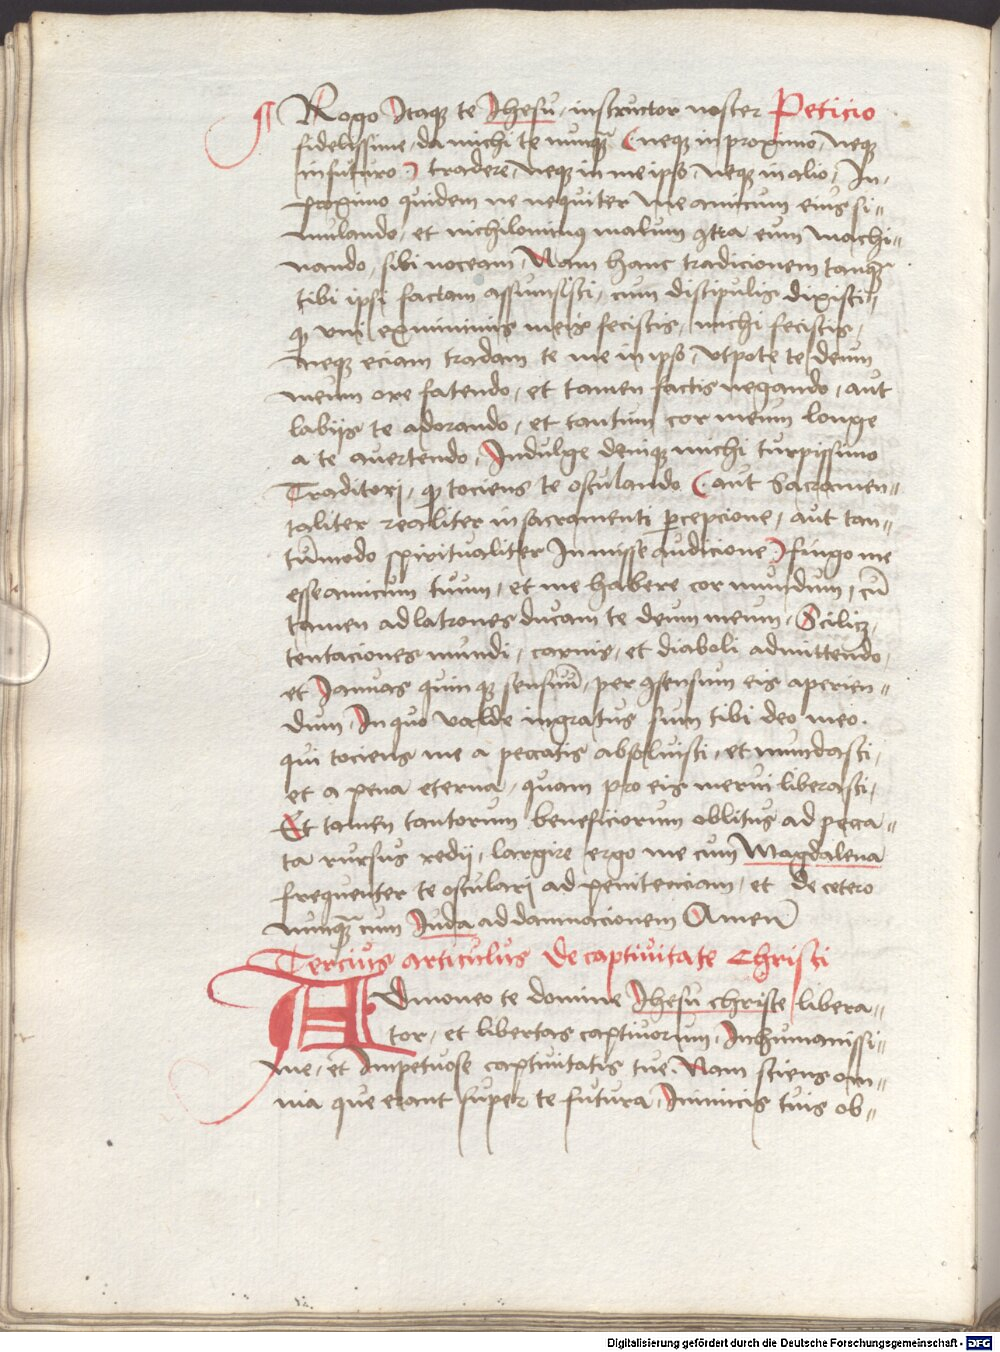 ¶ Rogo Itaqꝫ te Jhesu, instructor noster Peticio
fidelissime, da michi te nunqꝫ (neqꝫ in proximo, neqꝫ
in futuro) tradere, neqꝫ in me ipso, neqꝫ in alio, In
proximo quidem ne nequiter me amicum eius si=
mulando, et nichilominꝰ malum ꝯtra eum machi=
nando, sibi noceam, Nam hanc tradicionem tanqꝫ
tibi ipsi factam assumsisti, cum discipulis dixisti=
ꝙ vni ex minimis meis fecistis, michi fecistis,
neqꝫ eciam tradam te me in ipso, vtpote te deum
meum ore fatendo, et tamen factis negando, aut
labijs te adorando, et tantum cor meum longe
a te auertendo, Indulge deniqꝫ michi turpissimo
Traditorj, ꝙ tociens te osculando (aut Sacramen=
taliter realiter in sacramenti ꝑcepcione, aut tan=
tūmodo spiritualiter In misse audicione) fingo me
esse amicum tuum, et me habere cor mundum, cū
tamen ad latrones ducam te deum meum, Scilicꝫ,
tentaciones mundi, carnis, et diaboli admittendo,
et Ianuas quinqꝫ sensuū, per ꝯsensum eis aperien=
dum, In quo valde ingratus sum tibi deo meo.
qui tociens me a peccatis absoluisti, et mundasti,
et a pena eterna, quam pro eis merui liberasti,
Et tamen tantorum beneficiorum oblitus ad pecca=
ta rursus redij, largire ergo me cum Magdalena
frequenter te oscularj ad penitenciam, et de cetero
nunqꝫ cum Iuda ad damnacionem Amen
Tercius articulus de captiuitate Christi
Admoneo te domine Jhesu christe libera=
tor, et libertas captiuorum, Inhumanissi=
me, et Impetuose captiuitatis tue. Nam sciens om=
nia que erant super te futura, Inimicis tuis ob=
Digitalisierung gefördert durch die Deutsche Forschungsgemeinschaft - DFG